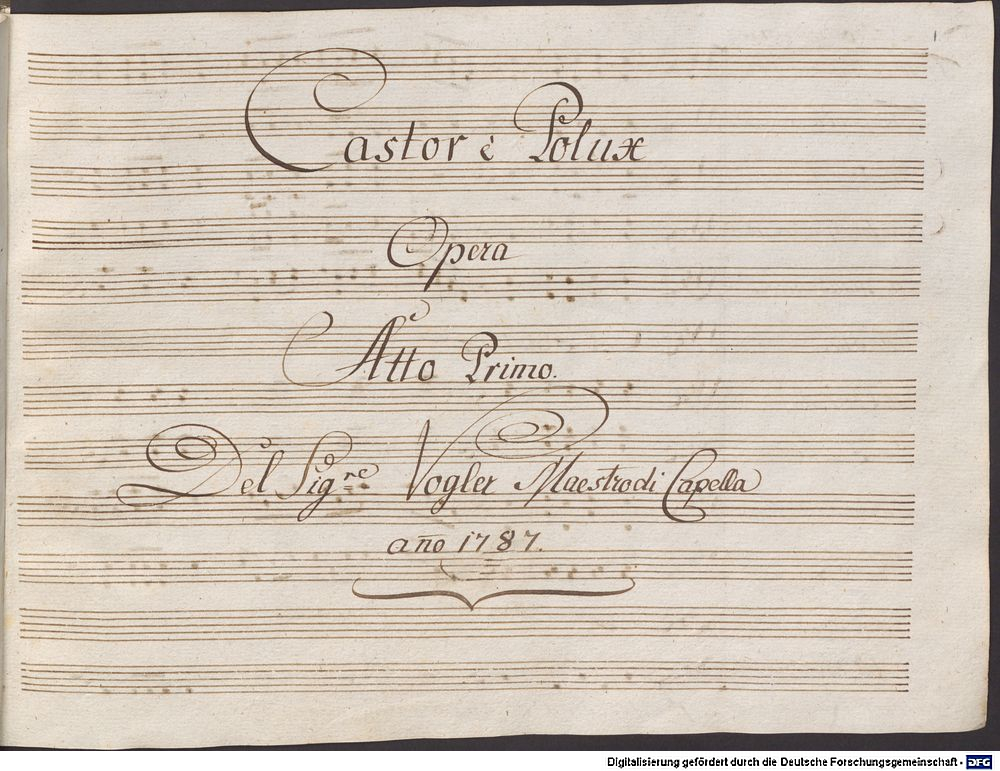 1
Castor è Polux
Opera
Atto Primo.
Del Sig:re Vogler Maestro di Capella
año 1787.
Digitalisierung gefördert durch die Deutsche Forschungsgemeinschaft - DFG